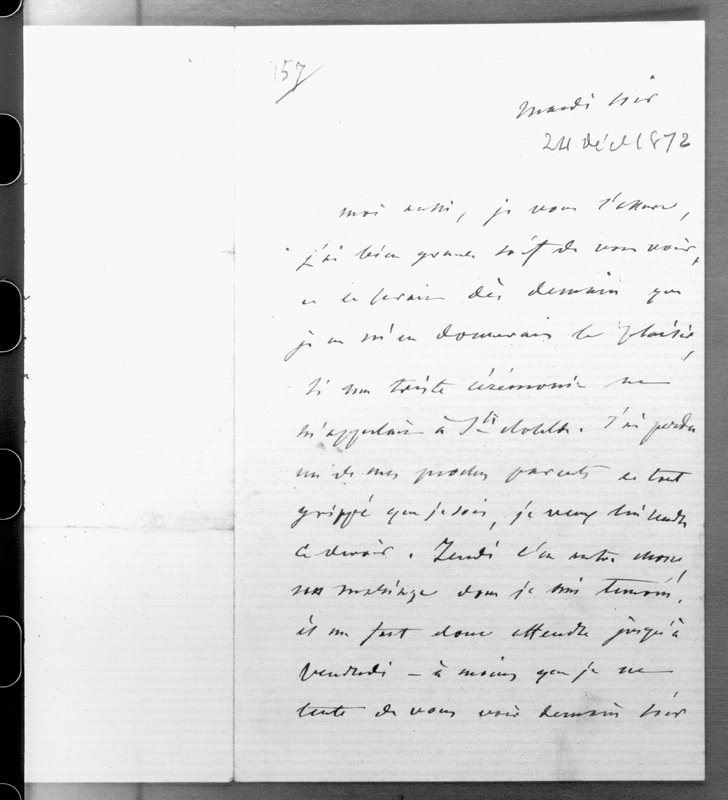 157
Mardi soir
24 déc 1872
moi aussi, je vous l'assure,
j'ai bien grande soif de vous voir,
et ce serait dès demain que
je m'en donnerais le plaisir,
si une triste cérémonie ne
m'appelait à Ste Clotilde. J'ai perdu
un de mes proches parents et tout
grippé que je sois, je veux lui rendre
ce devoir. Jeudi c'est autre chose,
un mariage dont je suis témoin.
il me faut donc attendre jusqu'à
vendredi – à moins que je ne
tente de vous voir demain soir